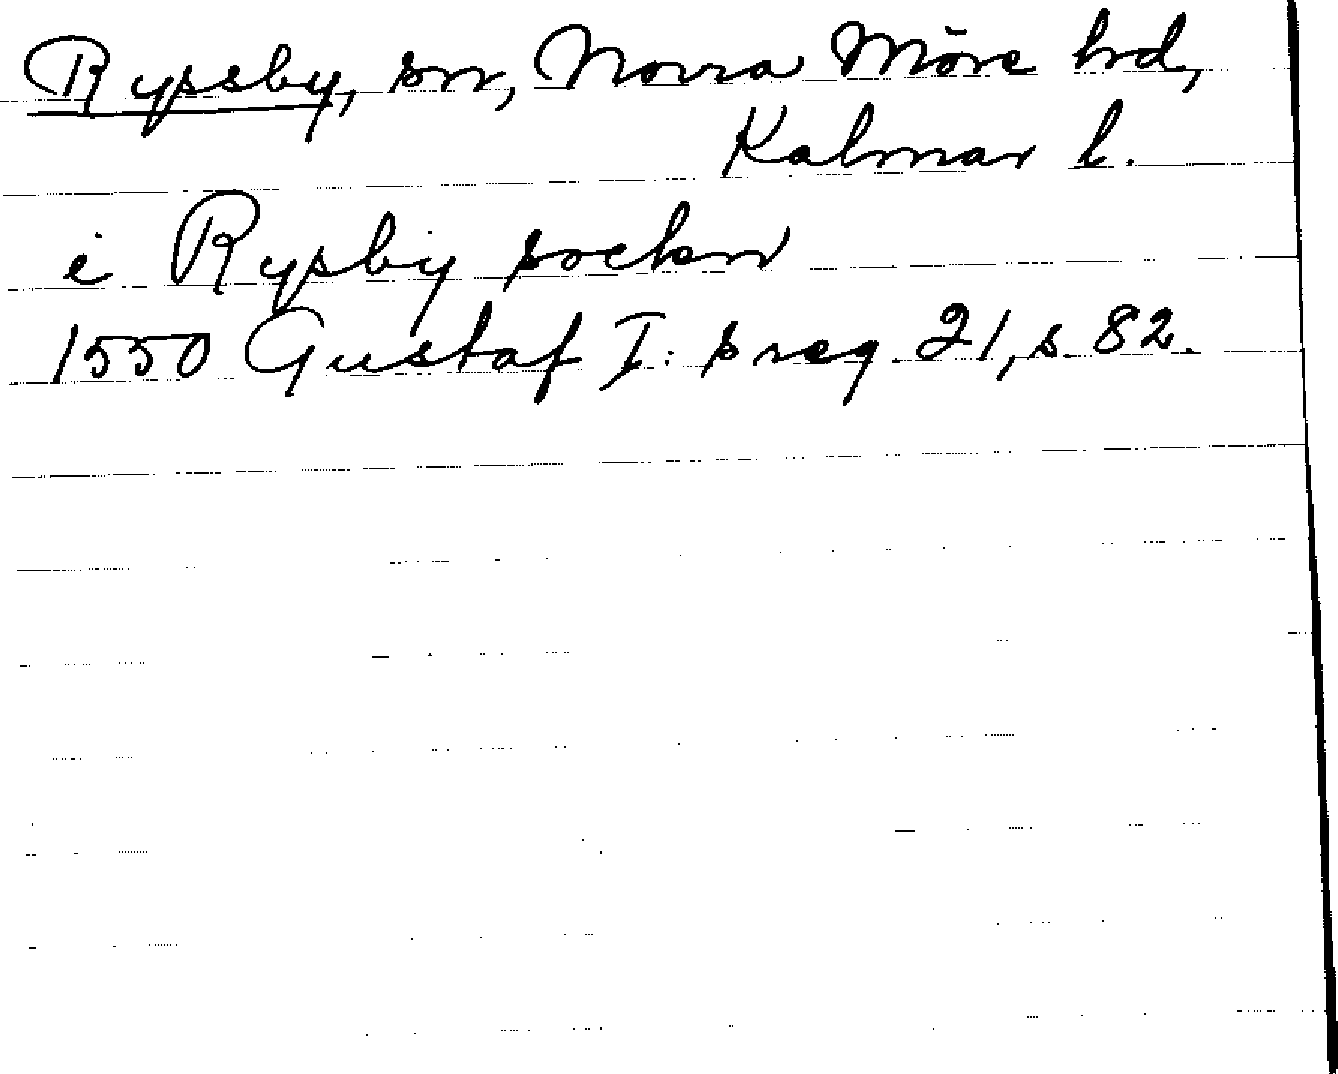 Ryssby, sn, Norra Möre hd,
Kalmar l.
i Rysby sockn
1550 Gustaf I:s reg. 21, s. 82.